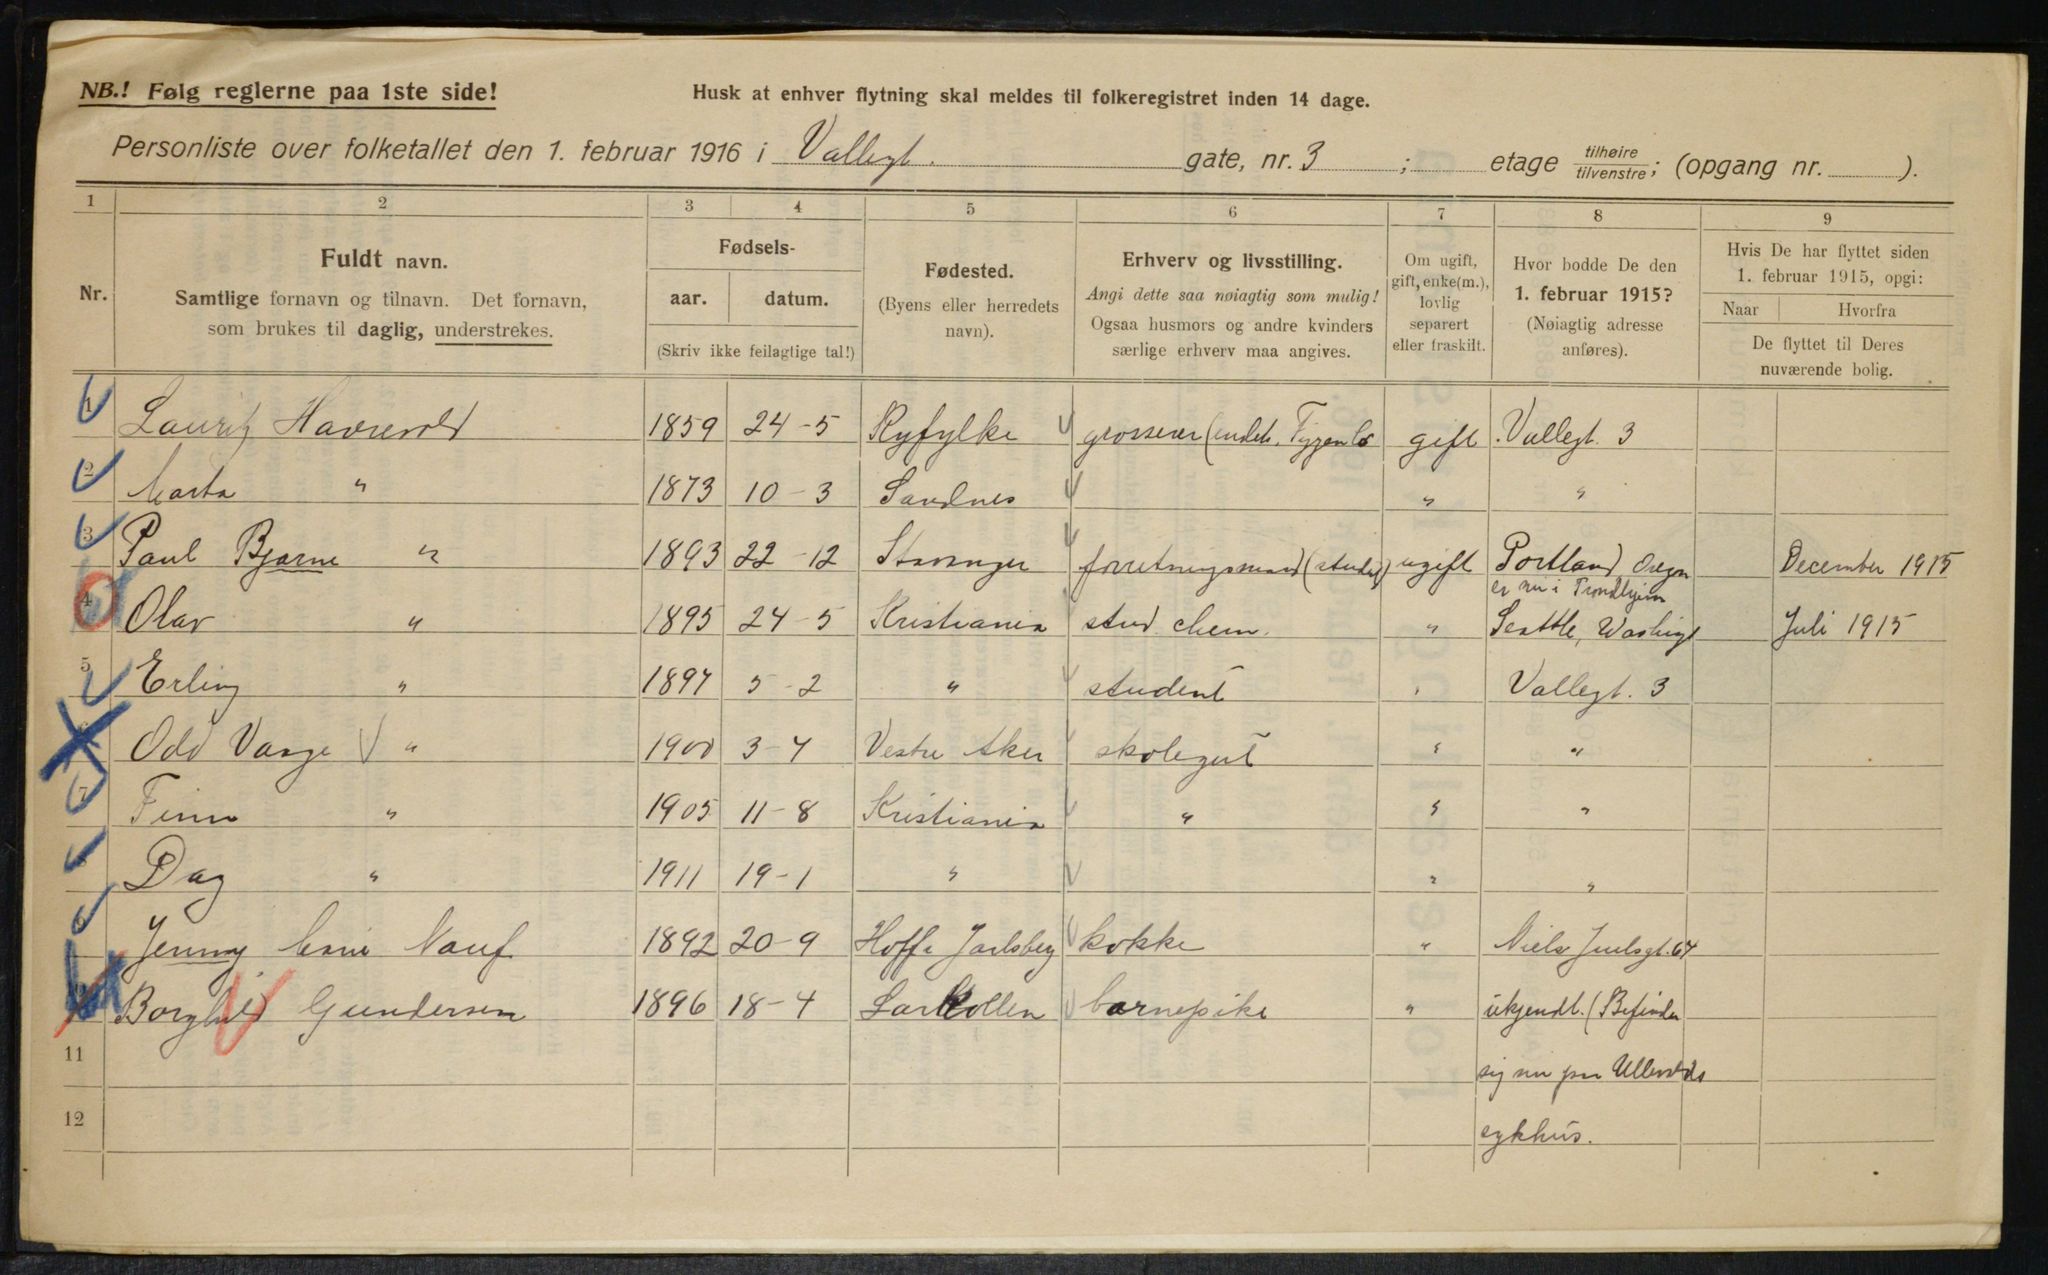 NB.! Følg reglerne paa 1ste side!
Husk at enhver flytning skal meldes til folkeregistret inden 14 dage.
Personliste over folketallet den 1. februar 1916 i Vallegt. gate, nr. 3 ; etage tilhøire tilvenstre; (opgang nr. ).
1 2 3 4 5 6 7 8 9
Nr.
Fuldt navn.
Samtlige fornavn og tilnavn. Det fornavn,
som brukes til daglig, understrekes.
Fødsels-
aar. datum.
(Skriv ikke feilagtige tal!)
Fødested.
(Byens eller herredets
navn).
Erhverv og livsstilling.
Angi dette saa nøiagtig som mulig!
Ogsaa husmors og andre kvinders
særlige erhverv maa angives.
Om ugift,
gift, enke(m.),
lovlig
separert
eller fraskilt.
Hvor bodde De den
1. februar 1915?
(Nøiagtig adresse
anføres).
Hvis De har flyttet siden
1. februar 1915, opgi:
Naar Hvorfra
De flyttet til Deres
nuværende bolig.
1 Lauritz Havrevold 1859 24-5 Ryfylke grosserer gift Vallegt. 3
2 Marta " 1873 10-3 Sandnes " "
3 Paul Bjarne " 1893 22-12 Stavanger forretningsmand ugift Portland Oregon December 1915
er nu i Trondhjem
4 Olav " 1895 24-5 Kristiania stud chem. " Seattle, Washingt Juli 1915
5 Erling " 1897 5-2 " student " Vallegt. 3
6 Odd Vange " 1900 3-4 Vestre Aker skolegut " "
7 Finn " 1905 11-8 Kristiania " " "
8 Dag " 1911 19-1 " " "
9 Jenny Marie Nauf 1892 20-9 Hoff Jarlsberg kokke " Niels Juelsgt. 64
10 Borghild Gundersen 1896 18-4 Larkollen barnepike " ukjendt. (Befinder
11 sig nu paa Ullevolds
12 sykhus.